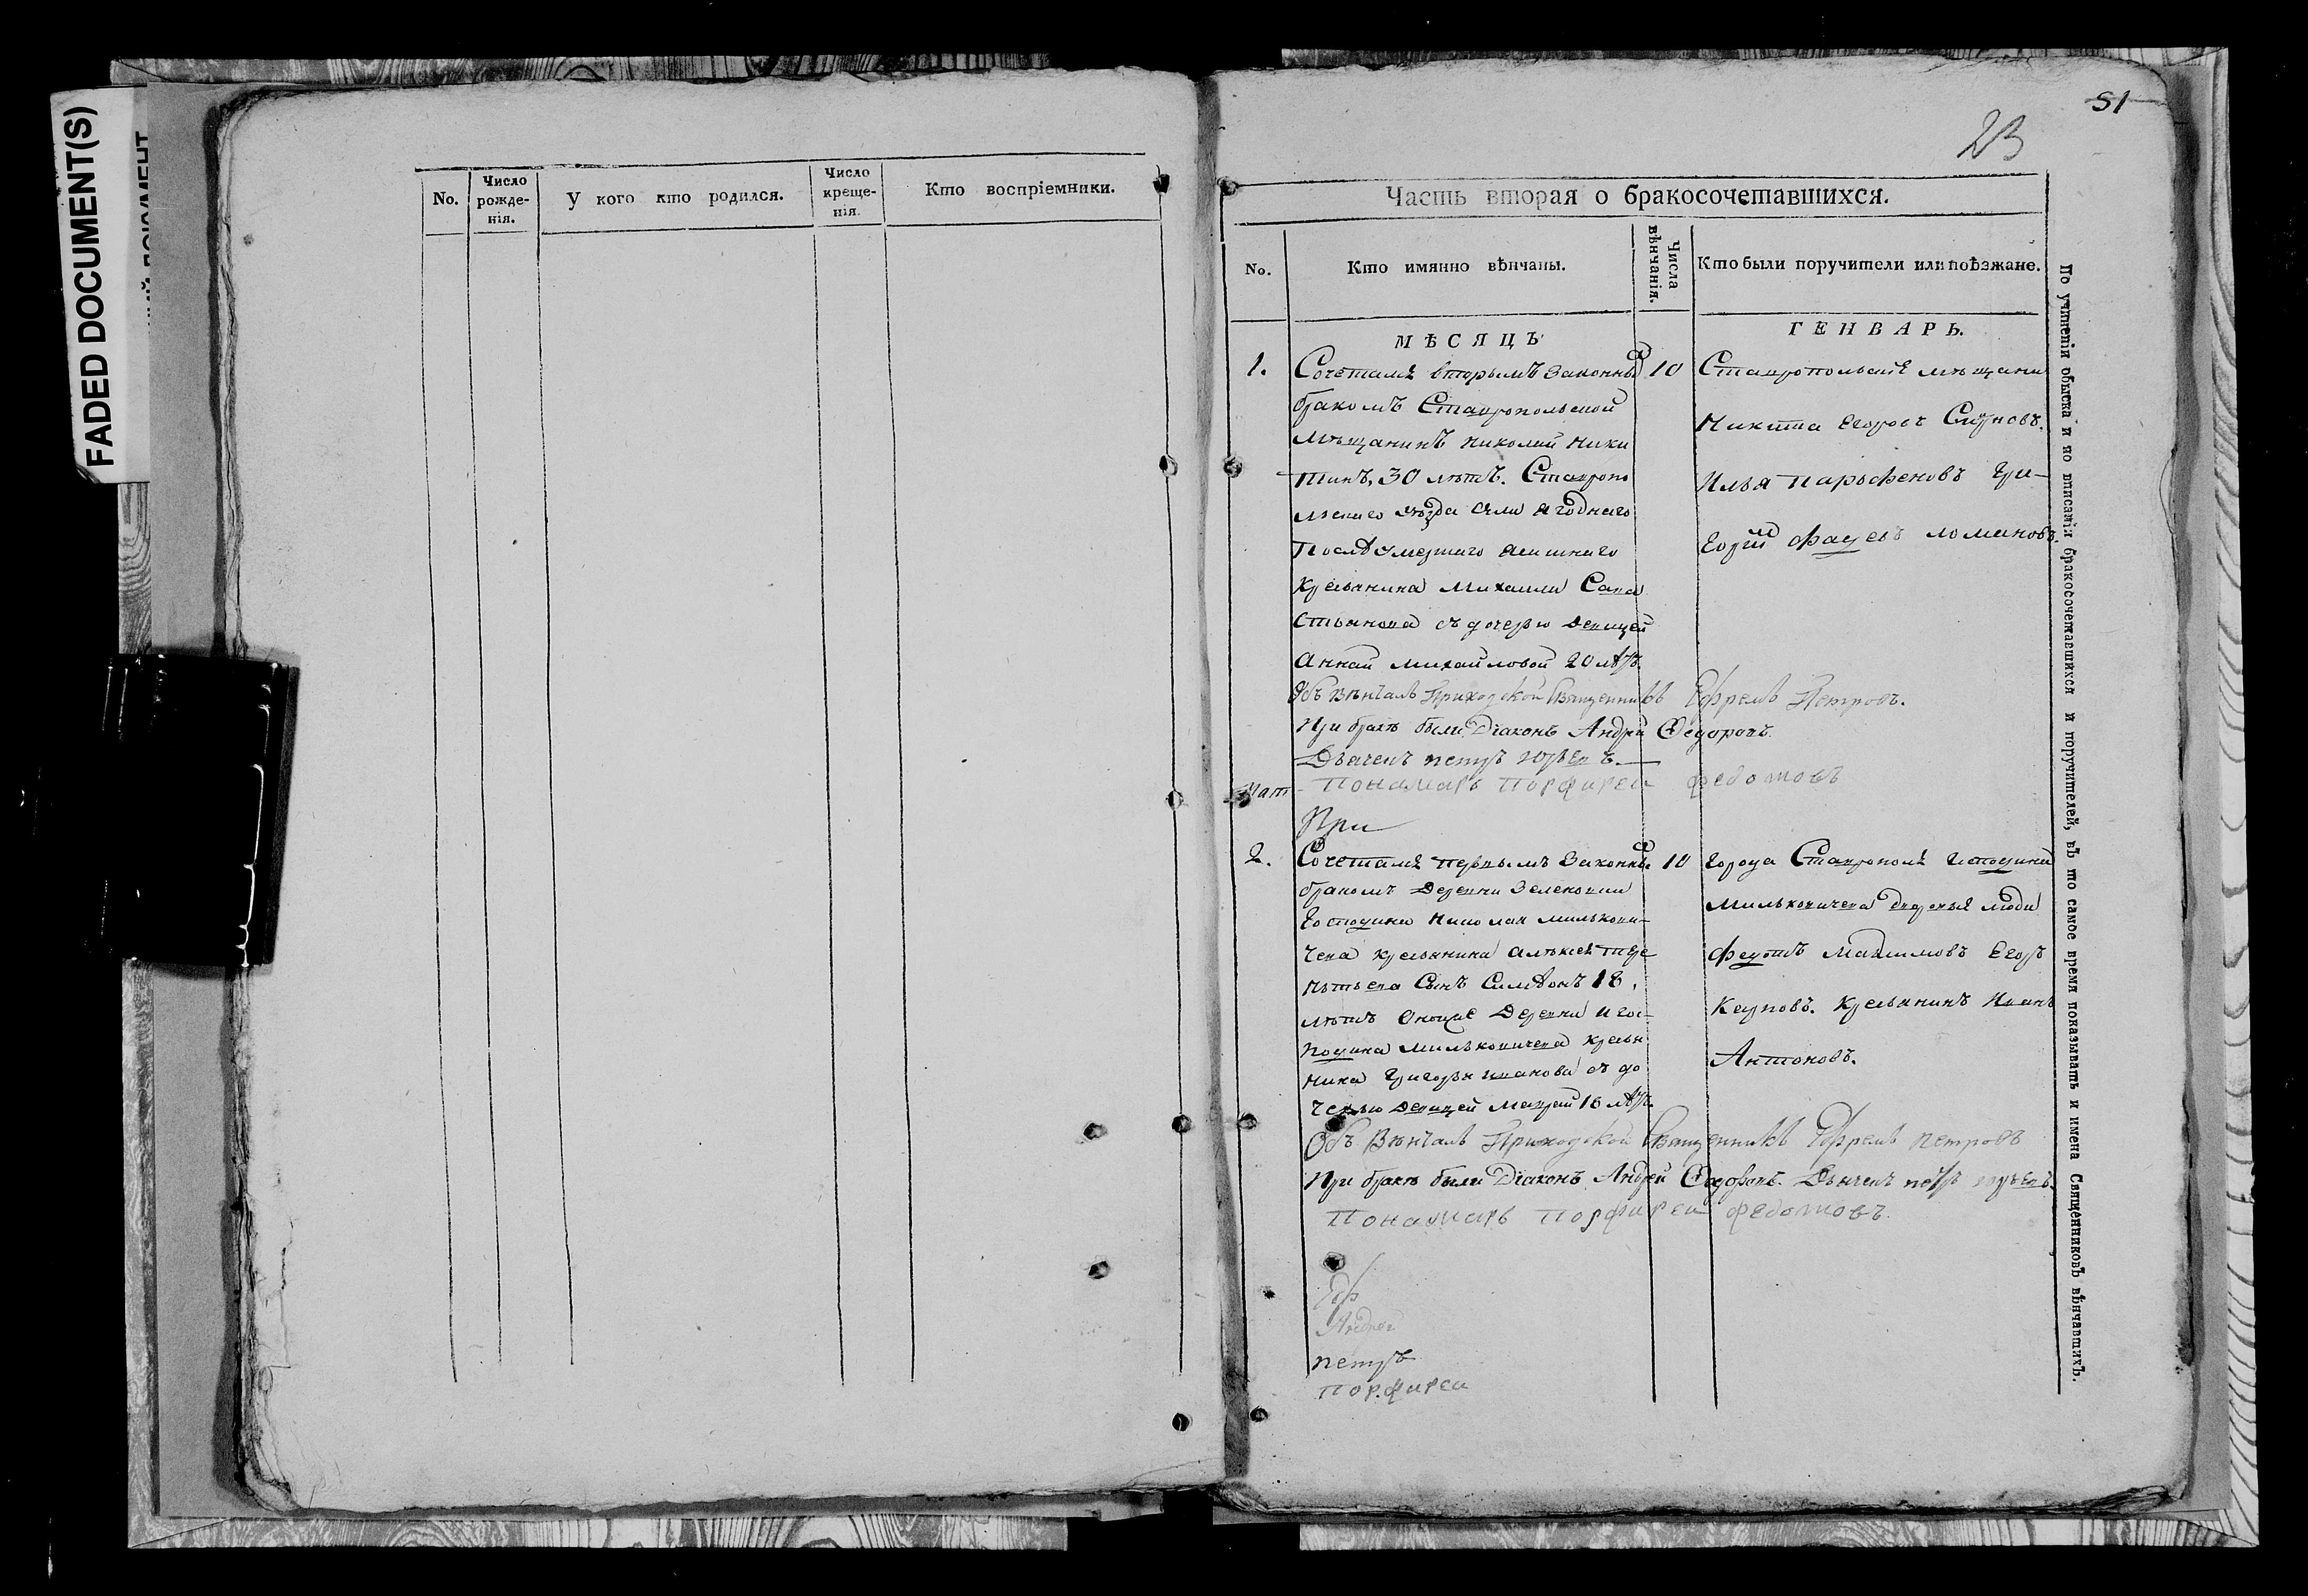 FADED DOCUMENT(S)
No.
Число рожде- нія.
У кого кто родился.
Число креще- нія.
Кто воспріемники.
51
23
Часть вторая о бракосочетавшихся.
No.
Кто имянно вѣнчаны.
Числа вѣнчанія.
Кто были поручители или поѣзжане.
МѢСЯЦЪ
ГЕНВАРЬ.
1.
Сочетался вторымъ законны
бракомъ Ставропольской
мѣщанинъ Николай Ники
тинъ, 30 лѣтъ. Ставропо
льскаго уѣзда села Ягоднаго
после умершаго
крестьянина Михаила
съ дочерью девицей
Анной Михайловой 20 лѣтъ.
10
Ставропольскіе мѣщани
Никита Егоровъ
Илья Парфеновъ Гри-
горій
Объ Вѣнчалъ Приходской Священникъ Ефремъ Петровъ.
При бракѣ были Діаконъ Андрей Федоровъ.
Дьячекъ Петръ
Понамарь Порфирей Федотовъ
При
2.
Сочетался первымъ законны
бракомъ Деревни Зеленовки
Господина Николая Милькови-
чева крестьянина Алексѣя
сынъ Симеонъ 18
лѣтъ оной Деревни и гос-
подина Мильковичева крестья
нина Григорья Иванова съ до
черью девицей 16 лѣтъ.
10
Города Ставрополя Господина
Мильковичева дворовыя люди
Максимовъ Егоръ
Карповъ. Крестьянинъ Иванъ
Антоновъ.
Объ Вѣнчалъ Приходской Священникъ Ефремъ Петровъ
При бракѣ были Діаконъ Андрей Федоровъ. Дьячекъ Петръ
Понамарь Порфирей Федотовъ.
Еф
Андрей
Петръ
Порфиреи
По учиненіи обыска и по вписаніи бракосочетавшихся и поручителей, въ то самое время показывать и имена Священниковъ вѣнчавшихъ.